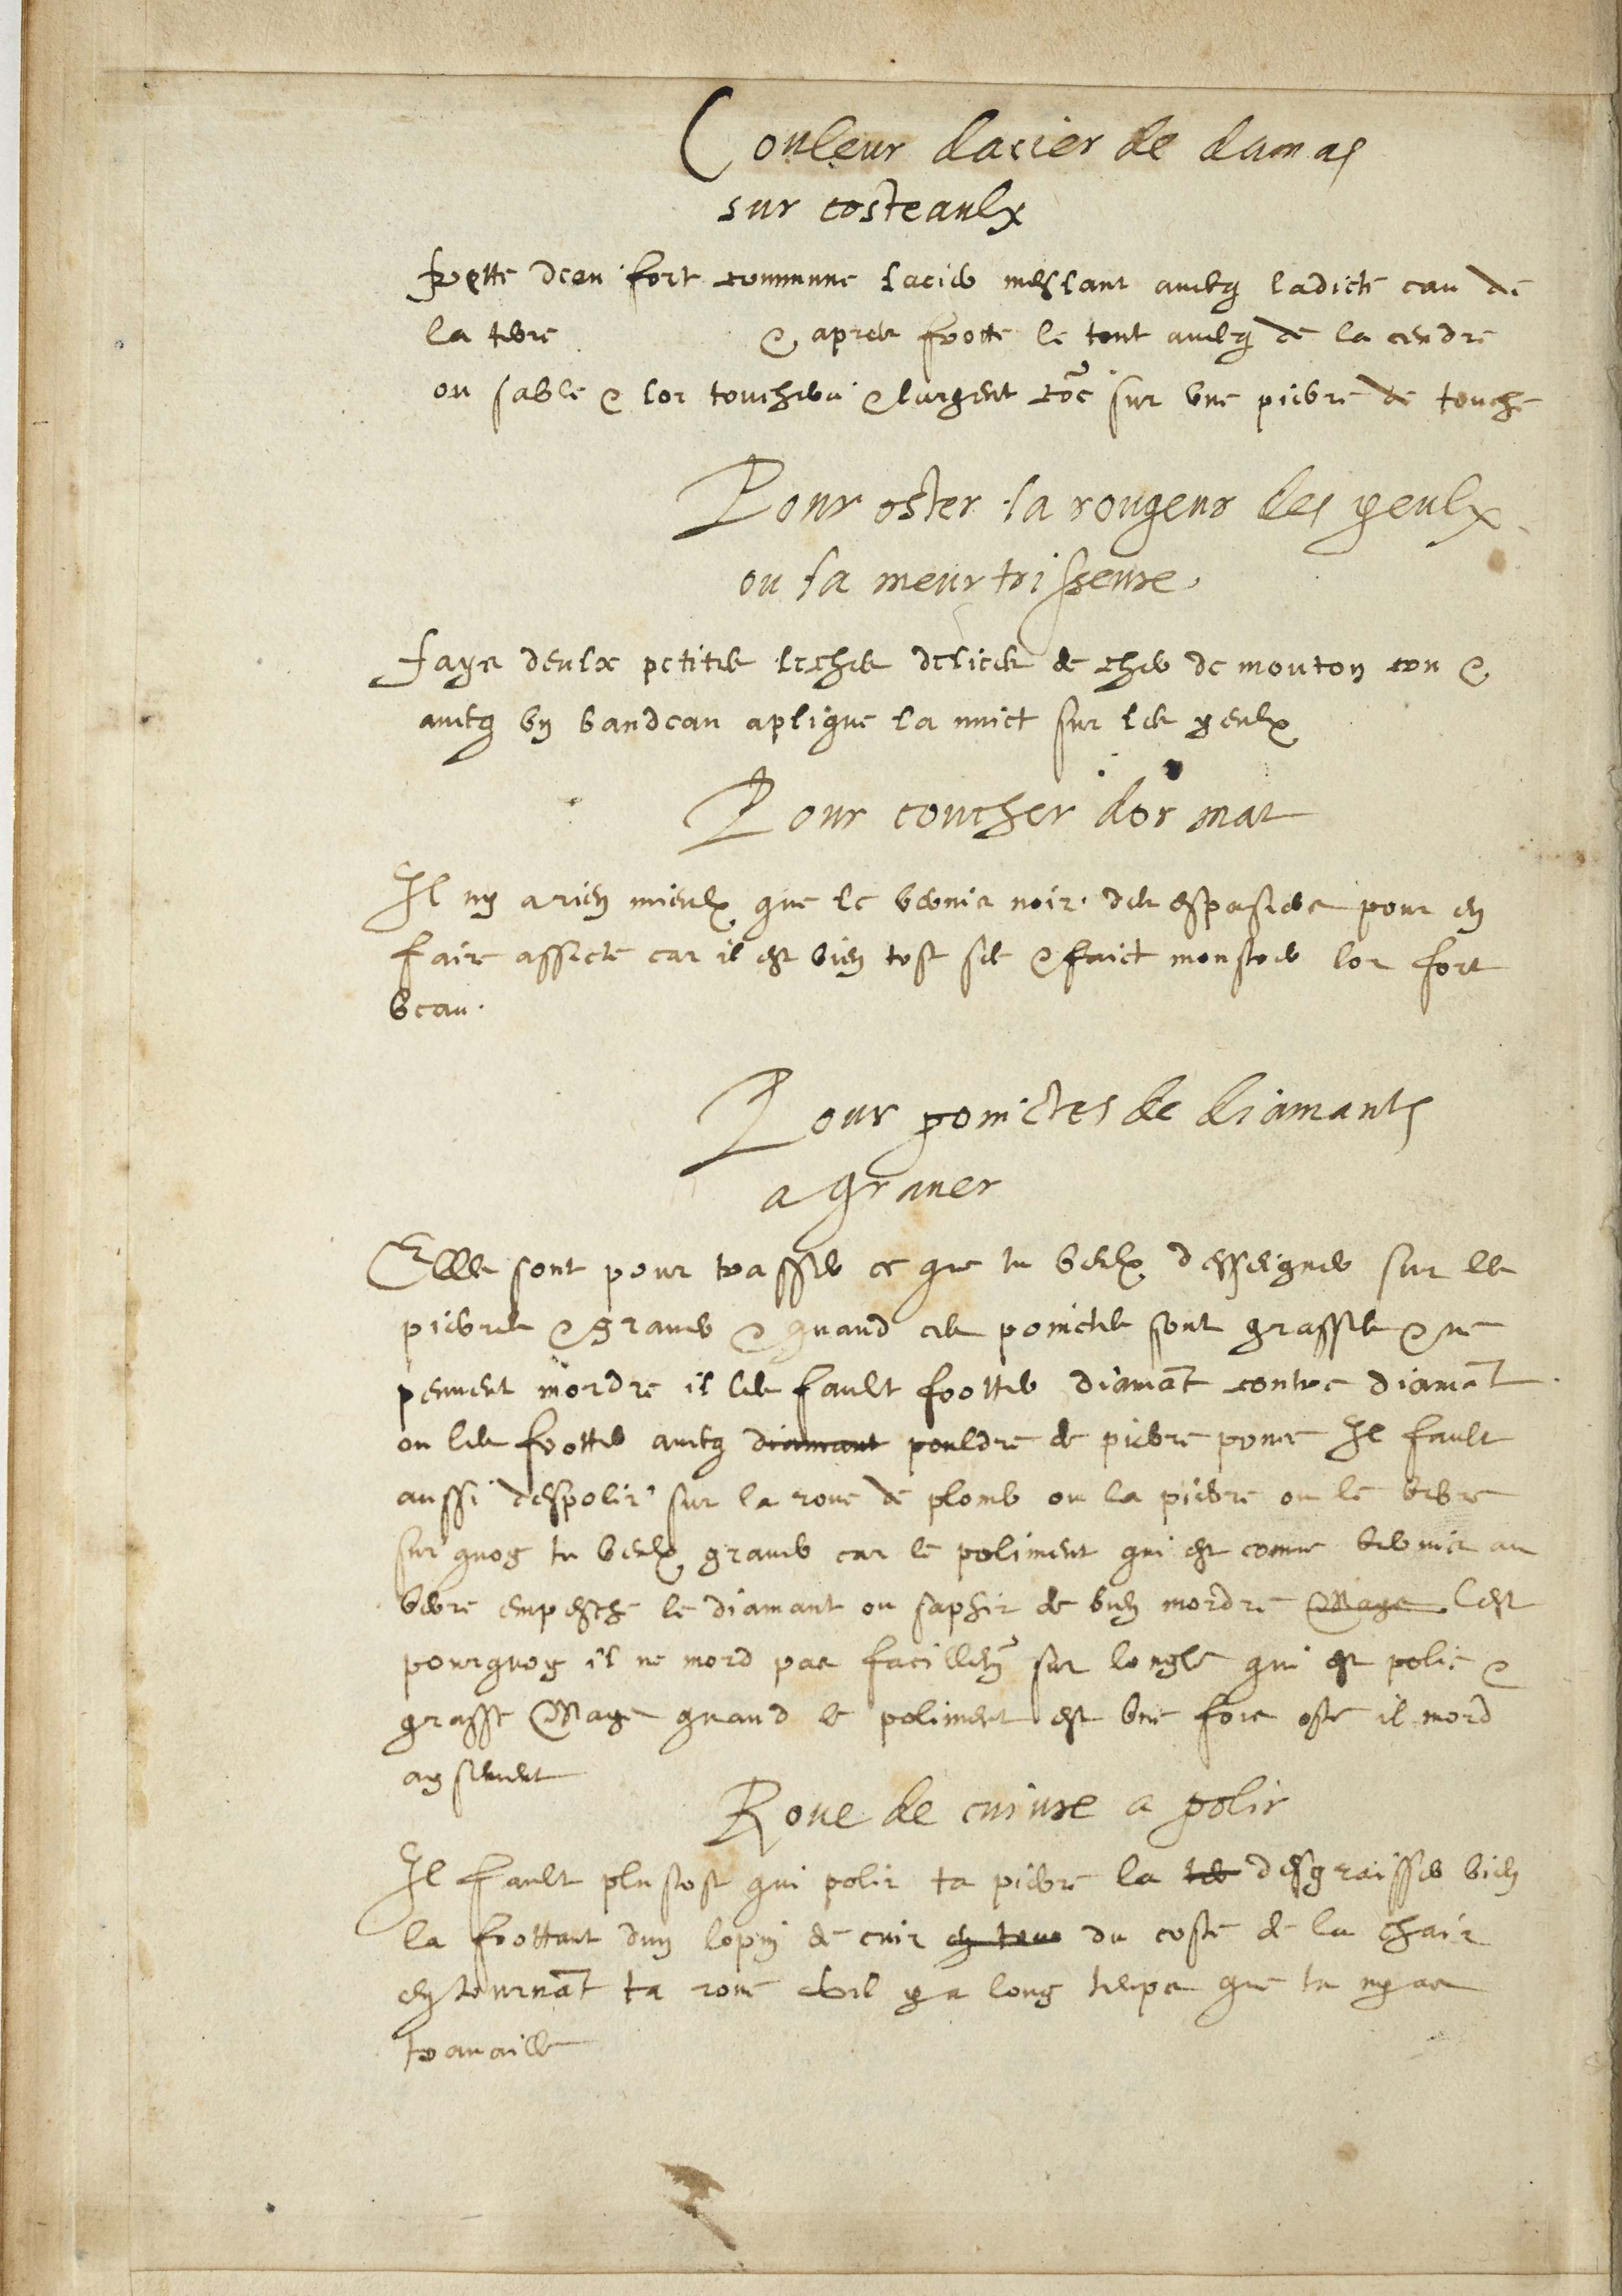 Couleur dacier de damas
sur costeaulx
frotte deau fort commune lacier meslant avecq ladicte eau de
la terre & apres frotte le tout avecq de la cendre
ou sable & lor touchera & largent cõe sur une pierre de touche
Pour oster la rougeur des yeulx
ou la meurtrisseure
fays deulx petites leches delicees de cher de mouton cru &
avecq un bandeau aplique la nuict sur les yeulx
Pour coucher dor mat
Il ny a rien mieulx que le vernis noir des espasiers pour en
faire assiete car il est bien tost sec & faict monstrer lor fort
beau.
Pour poinctes de diamants
a graver
Elles sont pour trasser ce que tu veulx desseigner sur les
pierres & graver & quand ces poinctes sont grasses & ne
peuvent mordre il les fault frotter diamãt contre diamãt
ou les frotter avecq diamant pouldre de pierre ponce Il fault
aussi despolir sur la roue de plomb ou la pierre ou le verre
sur quoy tu veulx graver car le poliment qui est comme vernis au
verre empesche le diamant ou saphir de bien mordre Mays Cest
pourquoy il ne mord pas facillem sur longle qui est polie &
grasse Mays quand le poliment est une fois oste il mord
aysement
Roue de cuivre a polir
Il fault plustost qui polir ta pierre la desgraisser bien
la frottant dun lopin de cuir du coste de la chair
en tournãt ta roue & sil y a long temps que tu ny as
travaille